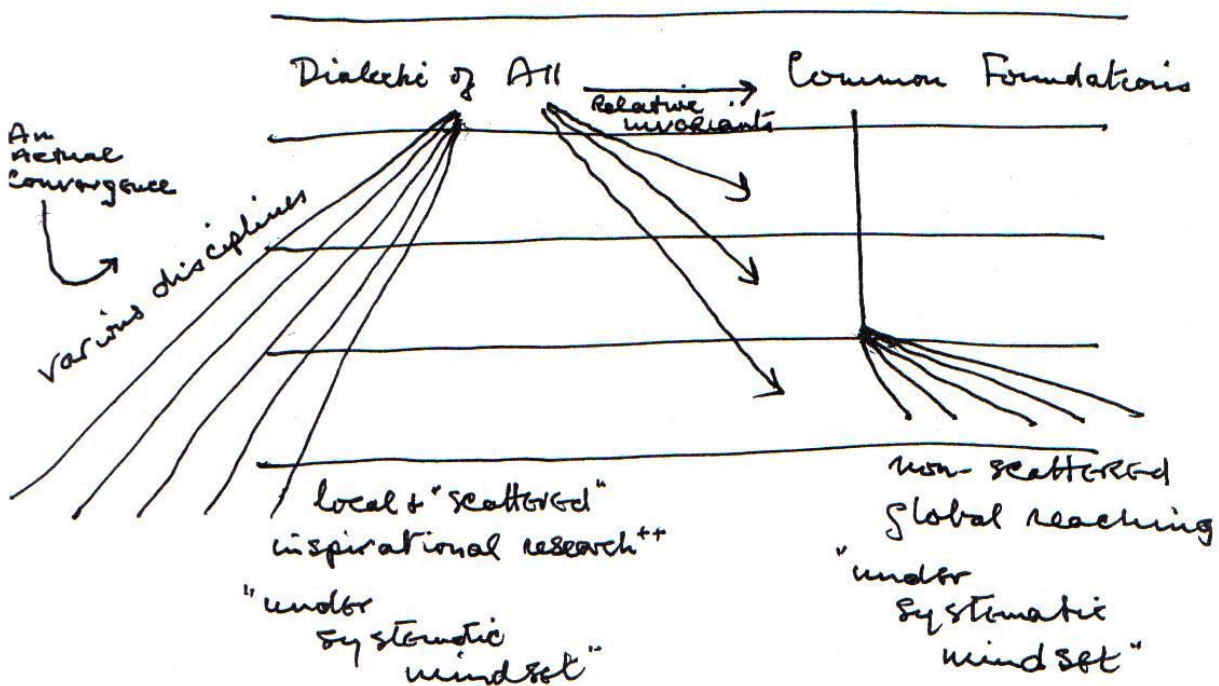 Dialectic of All
Common Foundations
Relative
invariants
An
Actual
Convergence
various disciplines
local + "scattered"
inspirational research++
"under
systematic
mindset"
non-scattered
global reaching
"under
systematic
mindset"